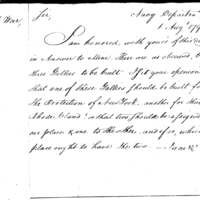 War,
Sir, Navy Departm
1 Augt 179
I am honored, with yours of this da
in Answer to mine. There are as observed, b
three Gallies to be built. Is it your opinion
that one of these Gallies should be built fo
the Protection of New York, another for the
Rhode Island? or that two should be assigned
one place & one to the other, and if so, whic
place ought to have the two — I am &c